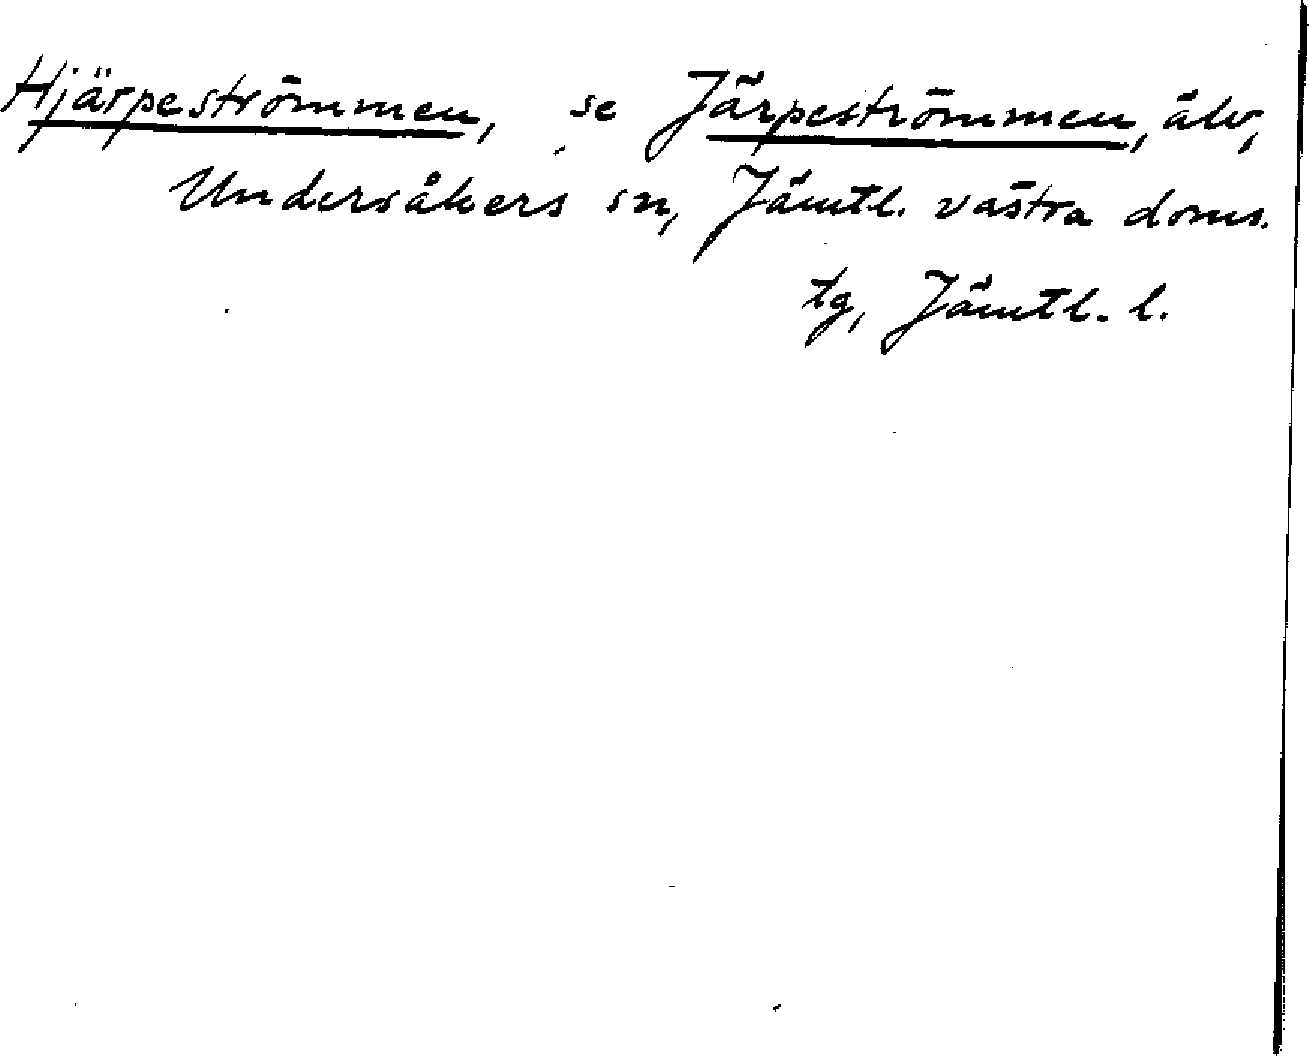 Hjärpeströmmen, se Järpeströmmen, älv,
Undersåkers sn, Jämtl. västra doms.
tg, Jämtl. l.